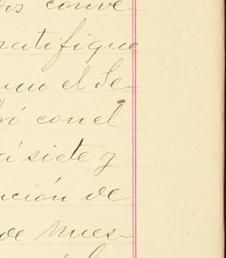 os conve
ratifique
uno el Se-
ró con el
á siete y
nción de
de Nues-